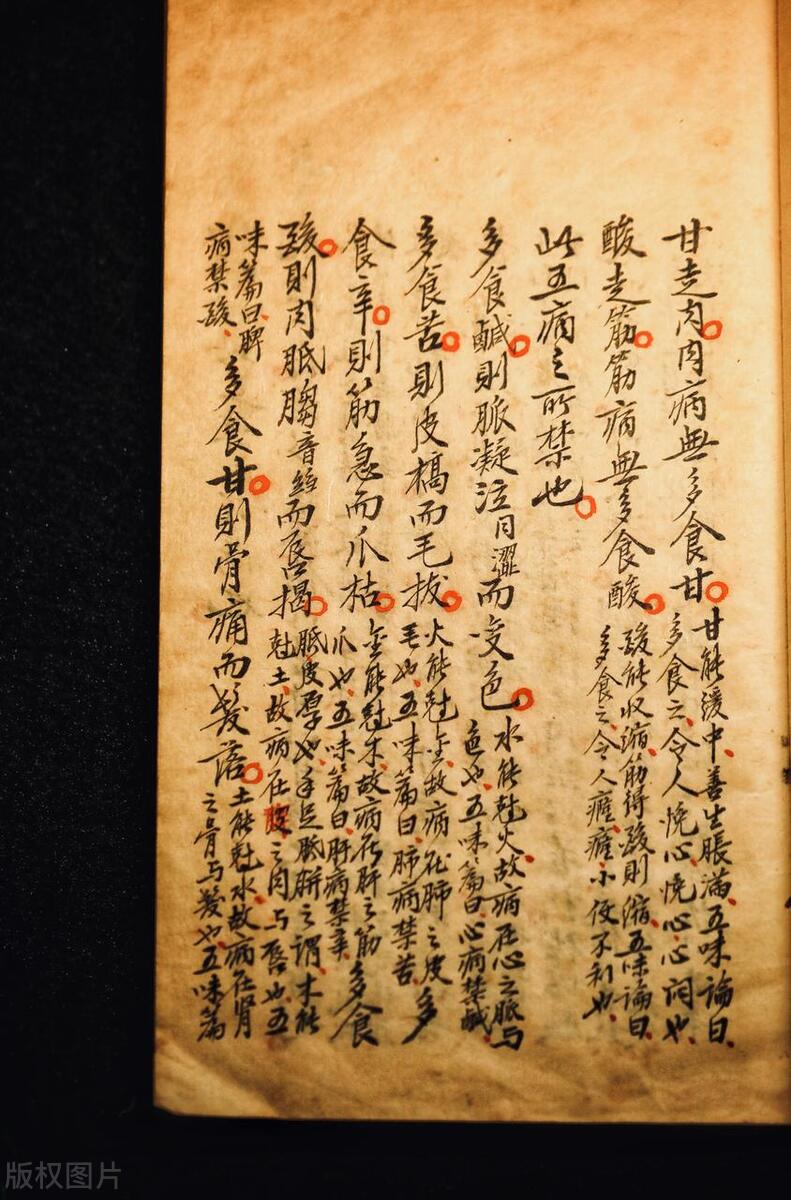 甘走肉肉病無多食甘
甘能緩中善生脹滿五味論曰
多食之令人悗心悗心心悶也
酸走筋筋病無多食酸
酸能收縮筋得酸則縮五味論曰
多食之令人癃癃小便不利也
此五病之所禁也
多食鹹則脈凝泣同澀而变色
水能尅火故病在心之脈与
色也五味篇曰心病禁鹹
多食苦則皮槁而毛拔
火能尅金故病在肺之皮
毛也五味篇曰肺病禁苦
多
食辛則筋急而爪枯
金能尅木故病在肝之筋
爪也五味篇曰肝病禁辛
多食
酸則肉胝䐢音而唇揭
胝皮厚也手足胝胼之謂木能
尅土故病在脾之肉与唇也五
味篇曰脾
病禁酸
多食甘則骨痛而髮落
土能尅水故病在腎
之骨与髮也五味篇
版权图片